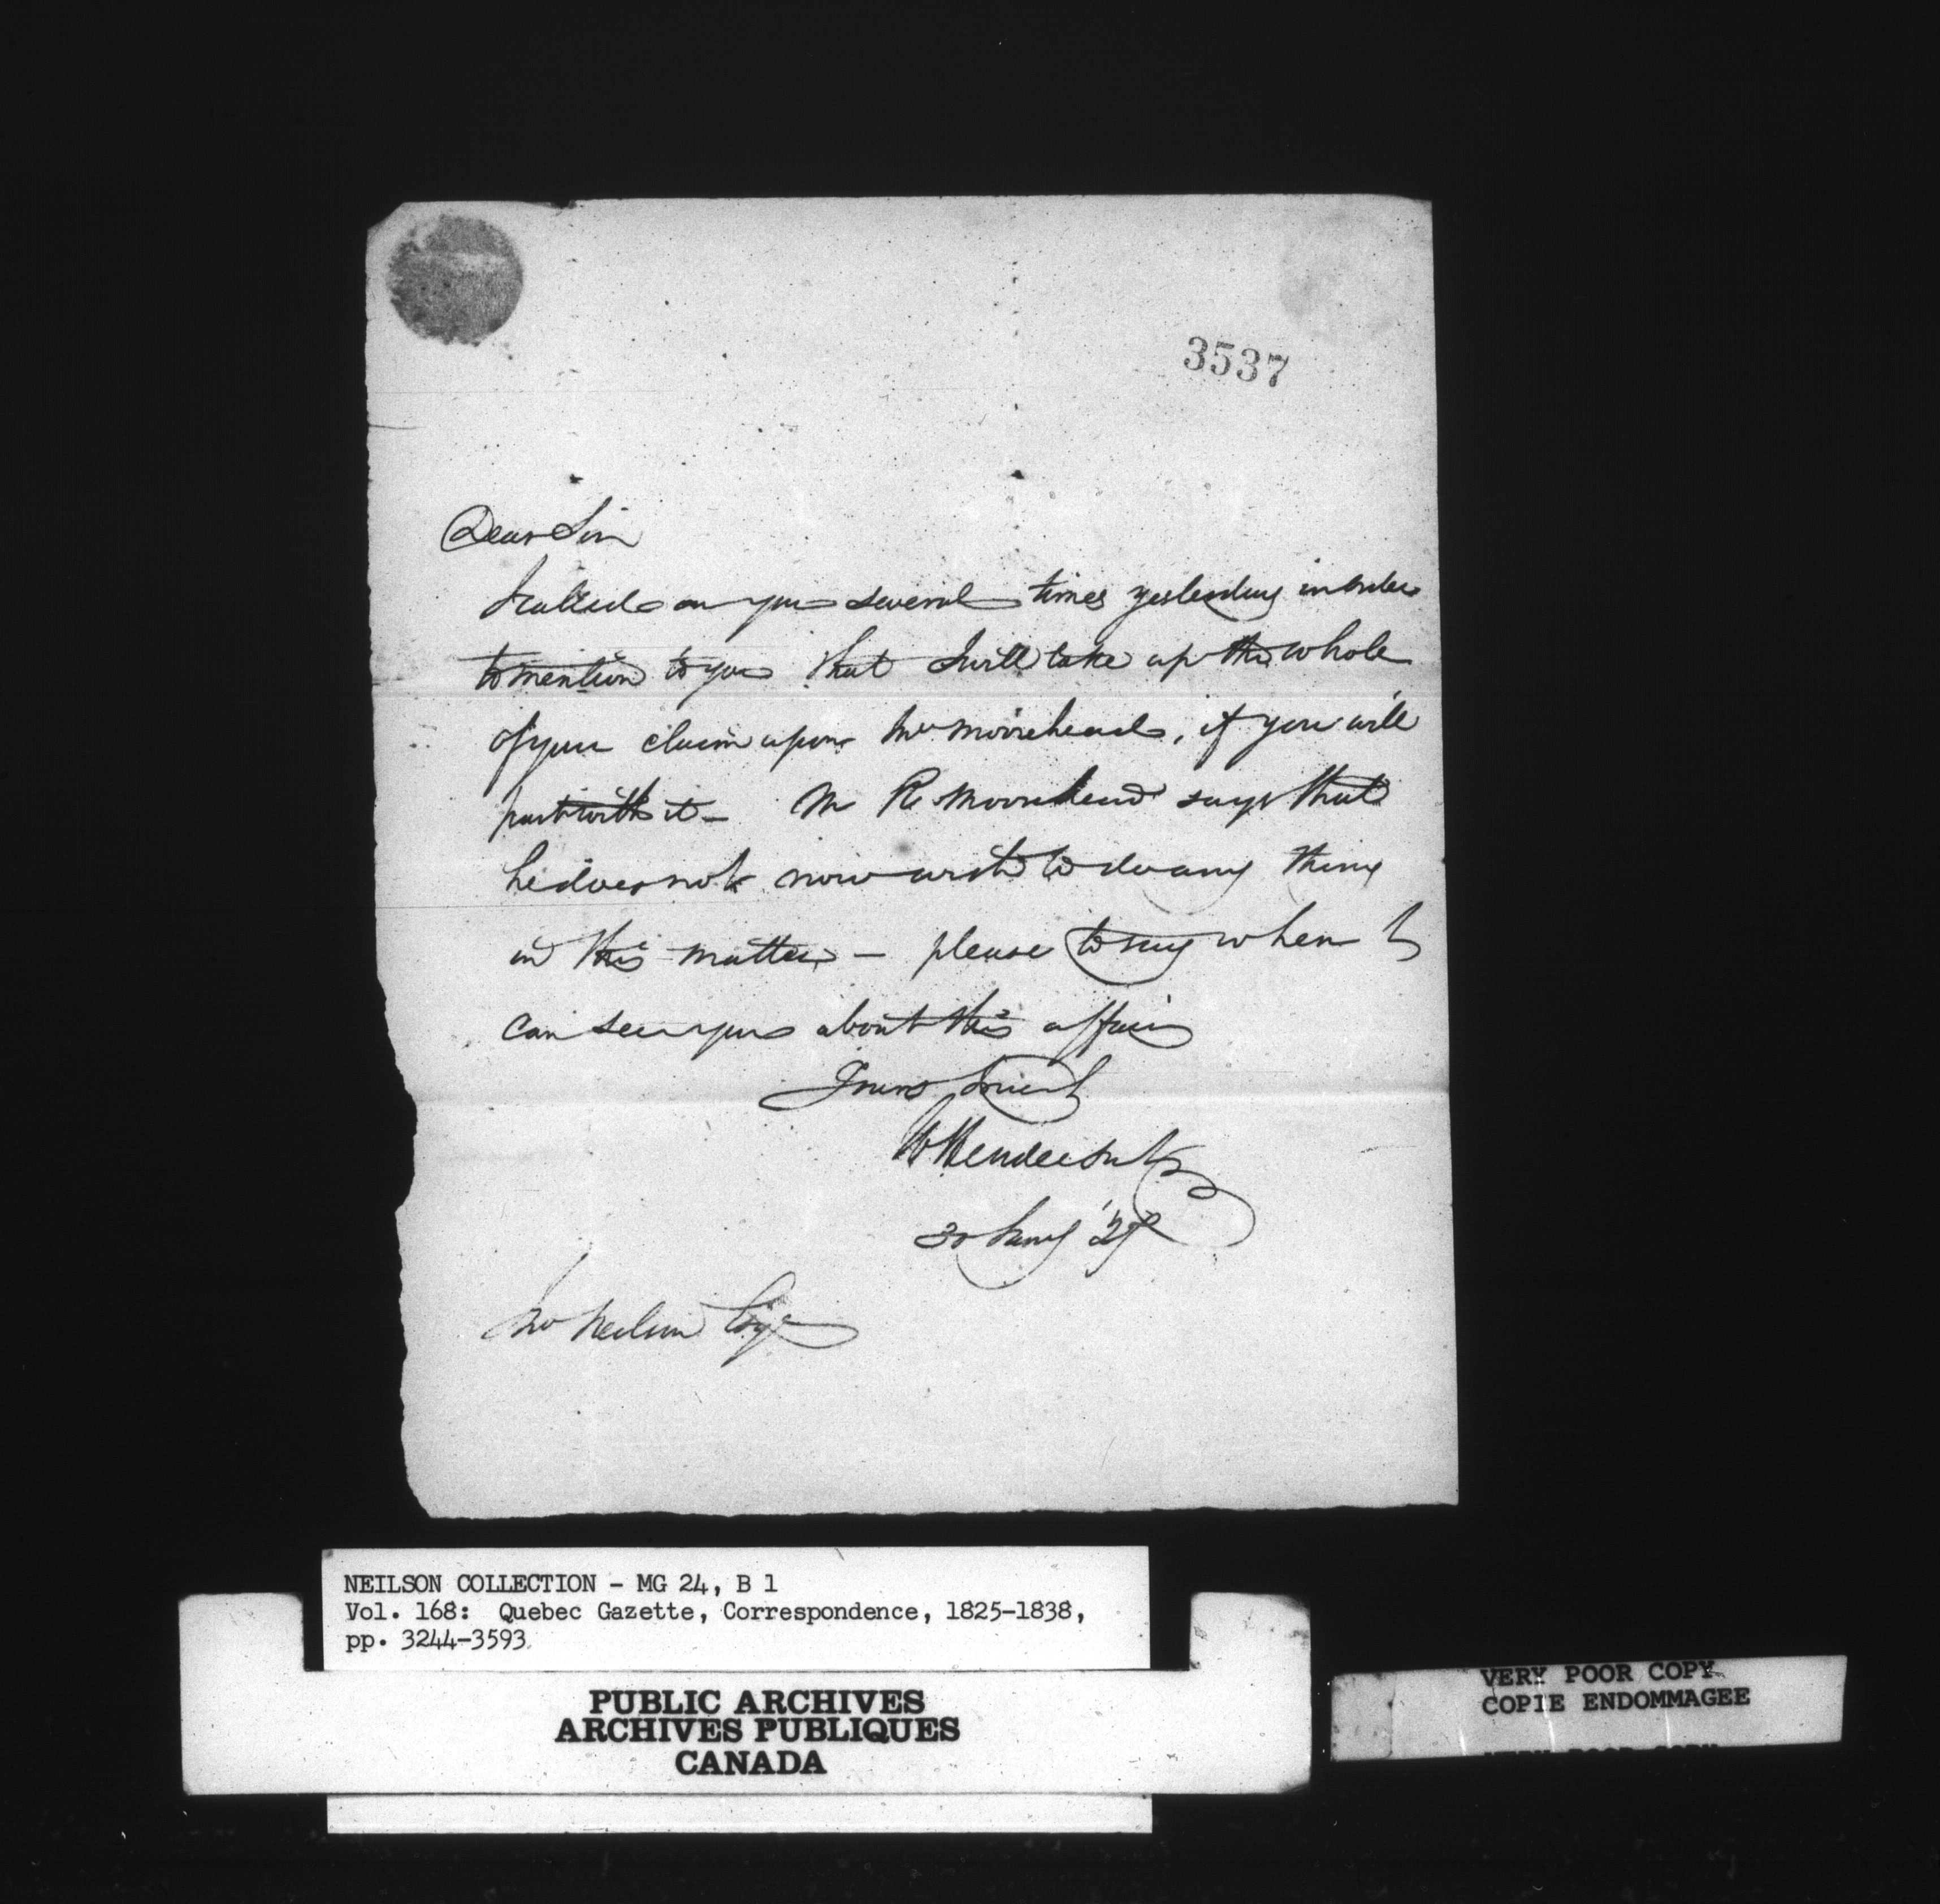 3537
Dear Sir
I called on you several times yesterday in order
to mention to you that I will take up the whole
of your claim upon Mr Moorehead, if you will
part with it — Mr R. Moorehead says that
he does not now wish to do any thing
in this matter — please to say when I
can see you about this affair
Yours truly
W Henderson
30 Jany '29
Jno Neilson Esqr
NEILSON COLLECTION - MG 24, B 1
Vol. 168: Quebec Gazette, Correspondence, 1825-1838,
pp. 3244-3593
PUBLIC ARCHIVES
ARCHIVES PUBLIQUES
CANADA
VERY POOR COPY
COPIE ENDOMMAGEE
VERY POOR COPY